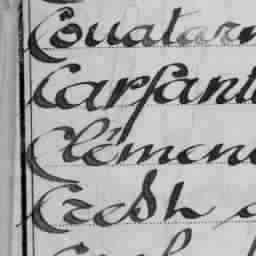 Couatarn
Carfant
Clémen
Cresh